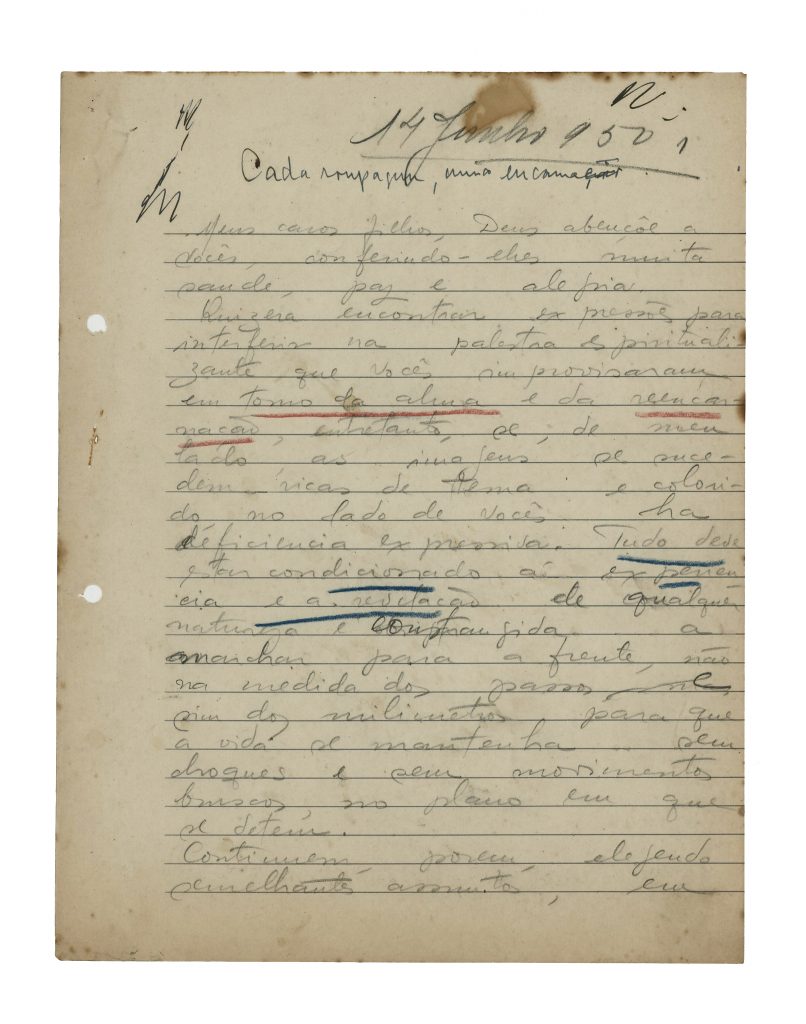 14 Junho 950
Cada roupagem, uma encarnação
Meus caros filhos, Deus abençôe a
vocês, conferindo-lhes muita
saude, paz e alegria.
Quizera encontrar expressões para
interferir na palestra espirituali-
zante que vocês improvisaram
em torno da alma e da reencar-
nação, entretanto, se, de meu
lado, as imagens se suce-
dem ricas de tema e colori-
do no lado de vocês ha
deficiencia expressiva. Tudo deve
estar condicionado á experien
cia e a revelação de qualquer
natureza é constrangida a
marchar para a frente, não
na medida dos passos, e
sim dos milimetros para que
a vida se mantenha sem
choques e sem movimentos
bruscos, no plano em que
se detem.
Continuem, porem, elegendo
semelhantes assuntos, em